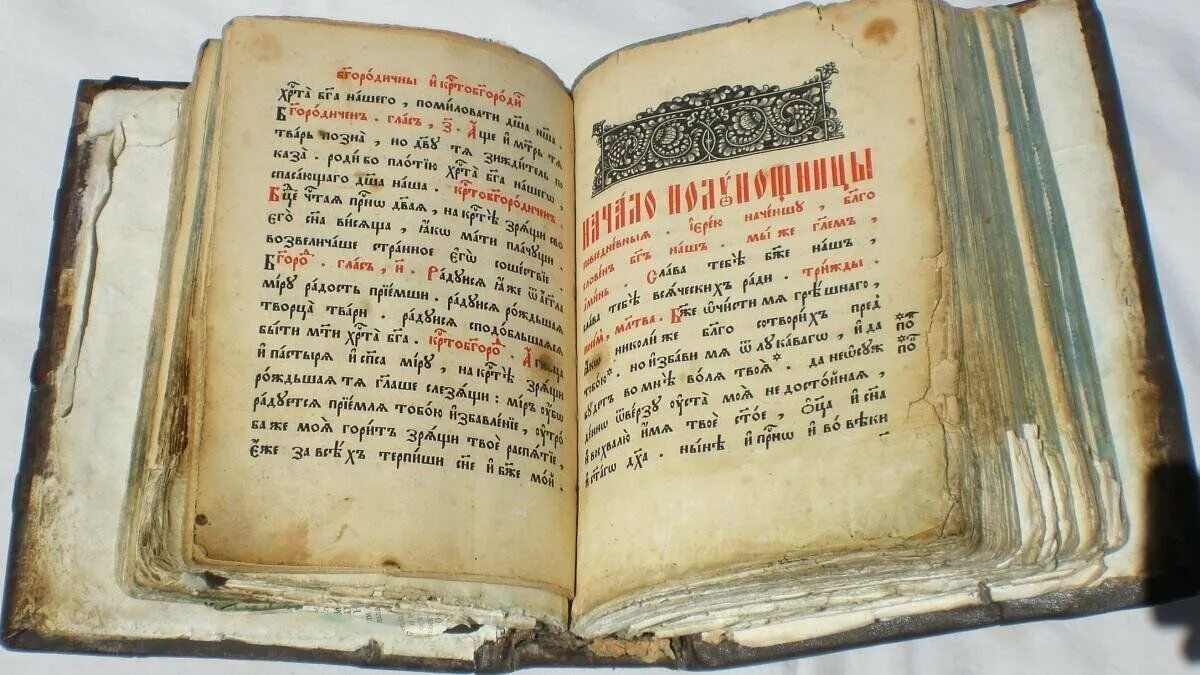 бг҃оро́дичны и҆ кр҇тобг҃оро́дны
хрⷭ҇та̀ бг҃а на́шего , поми́ловати дш҃а на́ша .
Бг҃оро́диченъ . гла́съ , з҃ . А҆́ще и҆ мт҃рь тѧ̀
тва́рь позна̀ , но дв҃у тѧ̀ зижди́тель по
каза̀ . роди́ бо пло́тїю хрⷭ҇та̀ бг҃а на́шегѡ ,
спаса́ющаго дш҃а на́ша . крⷭ҇тобг҃оро́диченъ .
Вⷣчце чⷭ҇таѧ при́снѡ дв҃аѧ , на крⷭ҇тѣ̀ зрѧ́щи сво
его̀ сн҃а ви́сѧща , ꙗ҆́кѡ ма́ти пла́чущи .
возвелича́ше стра́нное є҆гѡ̀ соше́ствїе .
Бг҃оро́ⷣ . гла́съ , и҃ . Ра́дуйсѧ ꙗ҆́же ѿ а҆́гг҃ла
мі́ру ра́дость прїе́мши . ра́дуйсѧ ро́ждьшаѧ
творца̀ тва́ри . ра́дуйсѧ сподо́бльшаѧсѧ
бы́ти мт҃и хрⷭ҇та̀ бг҃а . крⷭ҇тобг҃оро́ⷣ . А҆́гньца
и҆ па́стырѧ и҆ сп҃са мі́ру , на крⷭ҇тѣ̀ зрѧ́щи
ро́ждьшаѧ тѧ̀ гл҃аше слезѧ́щи : мі́ръ ᲂу҆́бѡ
ра́дуетсѧ прїе́млѧ тобо́ю и҆збавле́нїе , ᲂу҆тро́
ба же моѧ̀ гори́тъ зрѧ́щи твоѐ распѧ́тїе ,
є҆́же за всѣ́хъ терпи́ши сн҃е и҆ бж҃е мо́й .
НАЧА́ЛО ПОЛУ́НОЩНИЦЫ
повседне́вныѧ . і҆ере́ю наче́ншу , благо
слове́нъ бг҃ъ на́шъ . мы́ же гл҃емъ ,
а҆ми́нь . Сла́ва тебѣ̀ бж҃е на́шъ ,
сла́ва тебѣ̀ всѧ́ческихъ ра́ди . три́жды .
мл҃тва . Бж҃е ѡ҆чи́сти мѧ̀ грѣ́шнаго ,
ꙗ҆́кѡ николи́же бл҃го сотвори́хъ пред
тобо́ю* . но и҆зба́ви мѧ̀ ѿ лука́вагѡ , и҆ да
бу́детъ во мнѣ̀ во́лѧ твоѧ̀* . да неѡ҆су́ж
де́ннѡ ѿве́рзу ᲂу҆ста̀ моѧ̀ недосто́йнаѧ ,
и҆ восхвалю̀ и҆́мѧ твоѐ ст҃о́е , ѻ҆ц҃а̀ и҆ сн҃а
и҆ ст҃а́гѡ дх҃а . ны́нѣ и҆ при́снѡ и҆ во́ вѣки
по
по